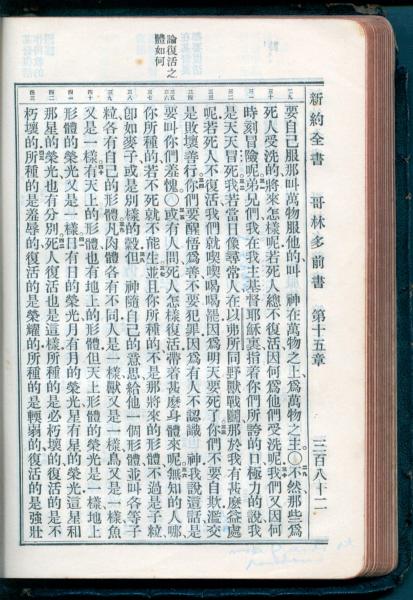 新約全書 哥林多前書 第十五章 三百八十二
要自己服那叫萬物服他的叫 神在萬物之上爲萬物之主〇不然那些爲
死人受洗的將來怎樣呢若死人總不復活因何爲他們受洗呢我們又因何
時刻冒險呢弟兄們我在我主基督耶穌裏指着你們所誇的口極力的說我
是天天冒死我若當日像尋常人在以弗所同野獸戰鬭那於我有甚麼益處
呢若死人不復活我們就喫喫喝喝罷因爲明天要死了你們不要自欺濫交
是敗壞善行你們要醒悟爲善不要犯罪因爲有人不認識 神我說這話是
論復活之
體如何
要叫你們羞愧〇或有人問死人怎樣復活帶着甚麼身體來呢無知的人哪
你所種的若不死就不能生並且你所種的不是那將來的形體不過是子粒
卽如麥子或是別樣的穀但 神隨自己的意思給他一個形體並叫各等子
粒各有自己的形體凡肉體各有不同人是一樣獸又是一樣鳥又是一樣魚
又是一樣有天上的形體也有地上的形體但天上形體的榮光是一樣地上
形體的榮光又是一樣日有日的榮光月有月的榮光星有星的榮光這星和
那星的榮光也有分別死人復活也是這樣所種的是必朽壞的復活的是不
朽壞的所種的是羞辱的復活的是榮耀的所種的是輭弱的復活的是強壯